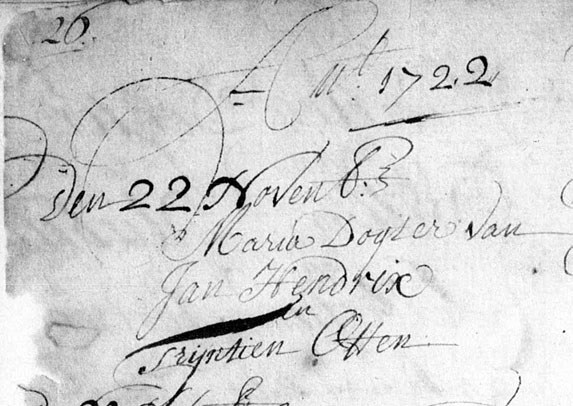 26.
1722
Den 22 Novenb:
is Maria Dogter van
Jan Hendrix
en
Trijntien Otten